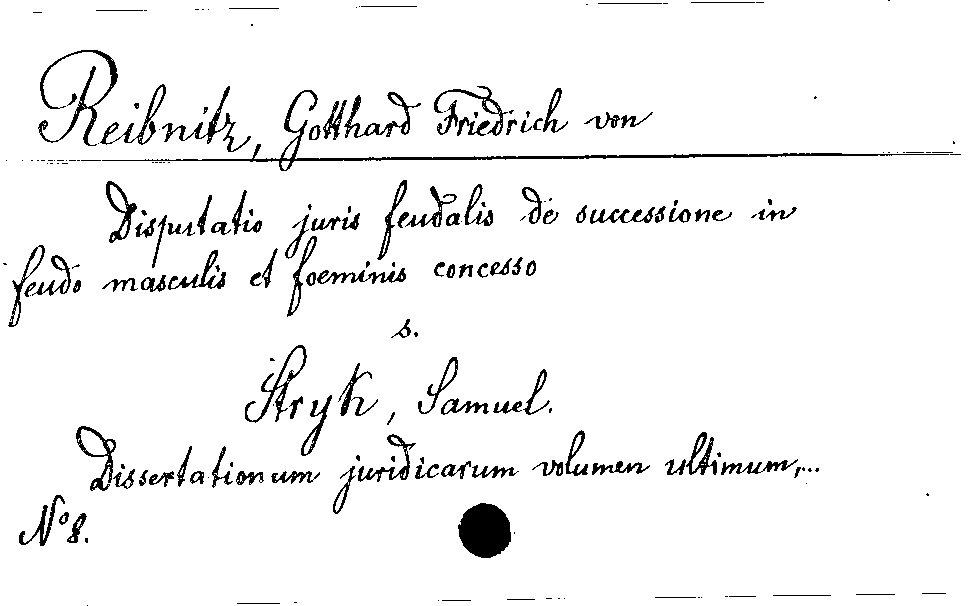 Reibnitz, Gotthard Friedrich von
Disputatio juris feudalis de successione in
feudo masculis et foeminis concesso
s.
Stryk, Samuel.
Dissertationum juridicarum volumen ultimum,...
No 8.